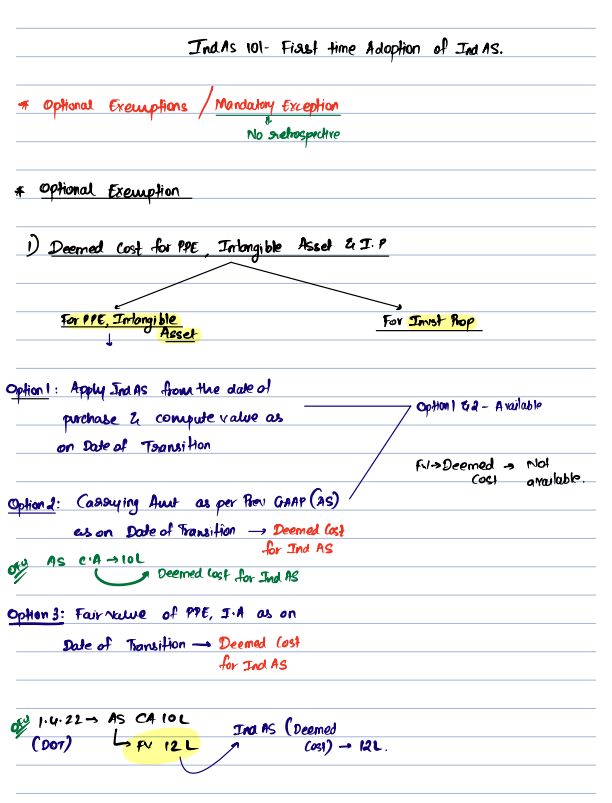 IndAs 101- First time Adoption of Ind AS.
* Optional Exemptions / Mandatory Exception
No retrospective
* Optional Exemption
1) Deemed Cost for PPE, Intangible Asset & I.P
For PPE, Intangible Asset
For Invst Prop
Option 1: Apply Ind AS from the date of
purchase & compute value as
on Date of Transition
Option 1 & 2 - Available
FV → Deemed Cost → Not available.
Option 2: Carrying Amt as per Prev GAAP (AS)
as on Date of Transition → Deemed Cost
for Ind AS
AS C.A → 10L
Deemed Cost for Ind AS
Option 3: Fair value of PPE, I.A as on
Date of Transition → Deemed Cost
for Ind AS
1.4.22 → AS CA 10L
(DOT) FV 12L
Ind AS (Deemed
Cost) → 12L.